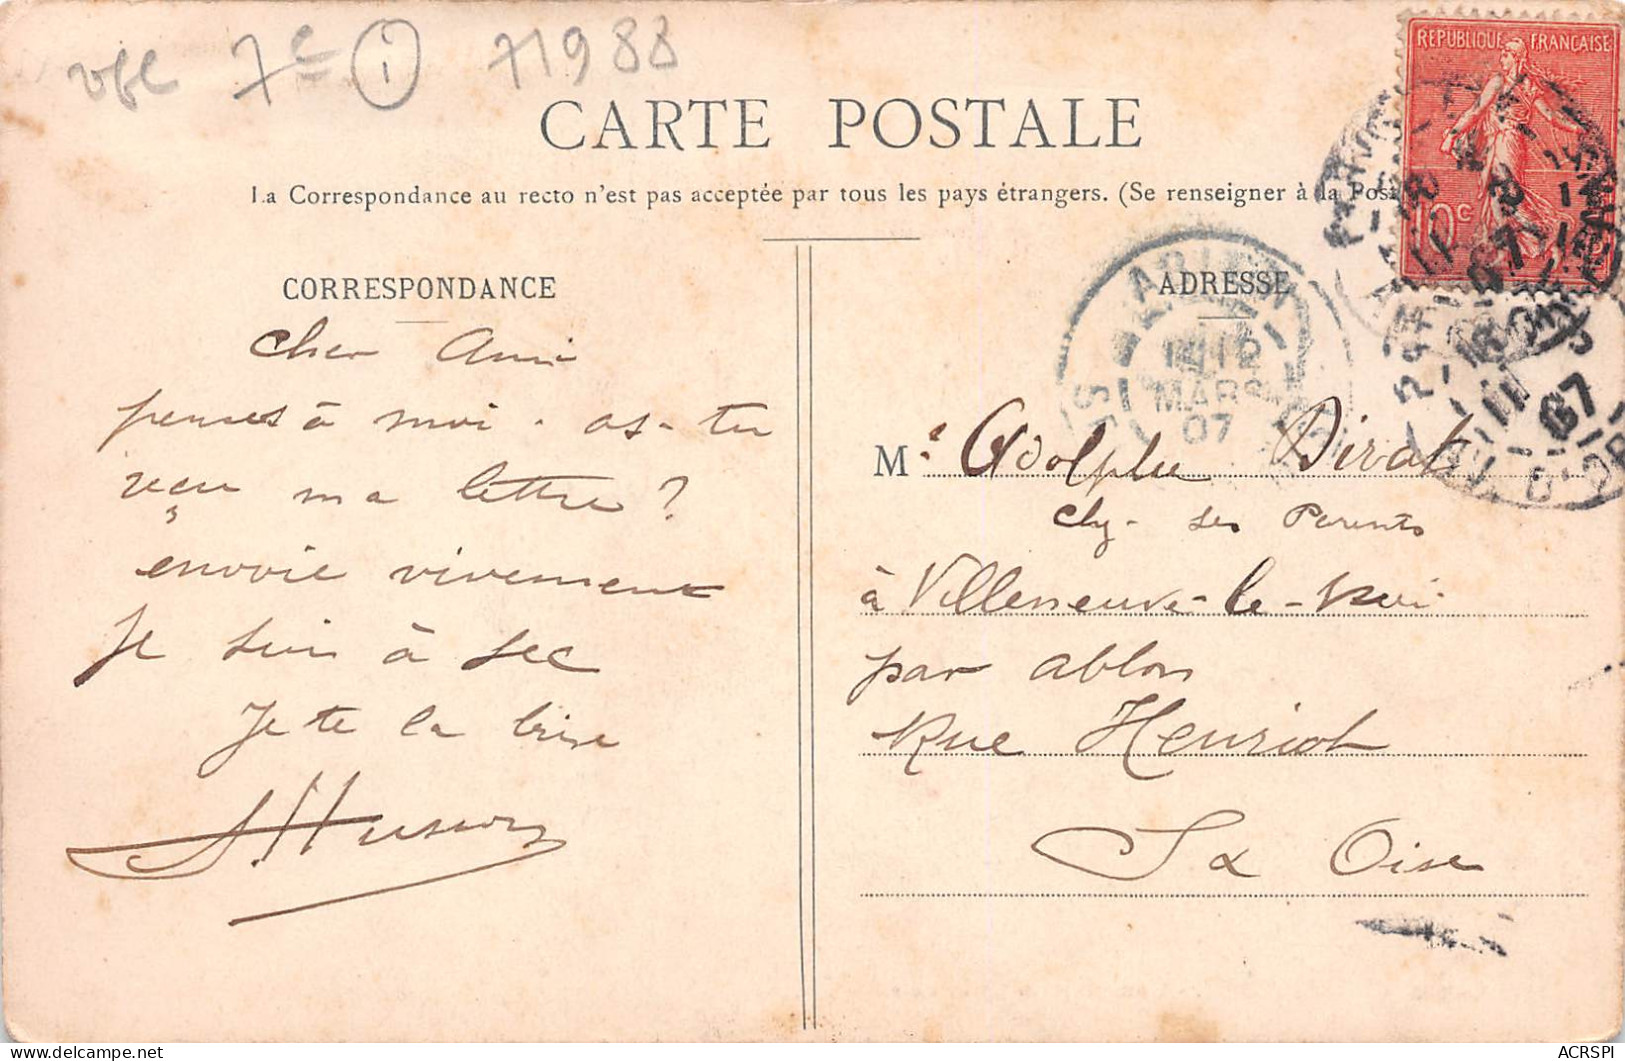 7e 1 71988
CARTE POSTALE
La Correspondance au recto n'est pas acceptée par tous les pays étrangers. (Se renseigner à la Post
REPUBLIQUE FRANÇAISE
10c
CORRESPONDANCE
Cher Ami
penses à moi. as-tu
reçu ma lettre?
envoie vivement
je suis à sec
Je te la bise
ADRESSE
12
MARS
07
Mr Adolphe
chz ses Parents
à Villeneuve-le-Roi
par ablon
Rue Henriot
Sx Oise
ACRSPI